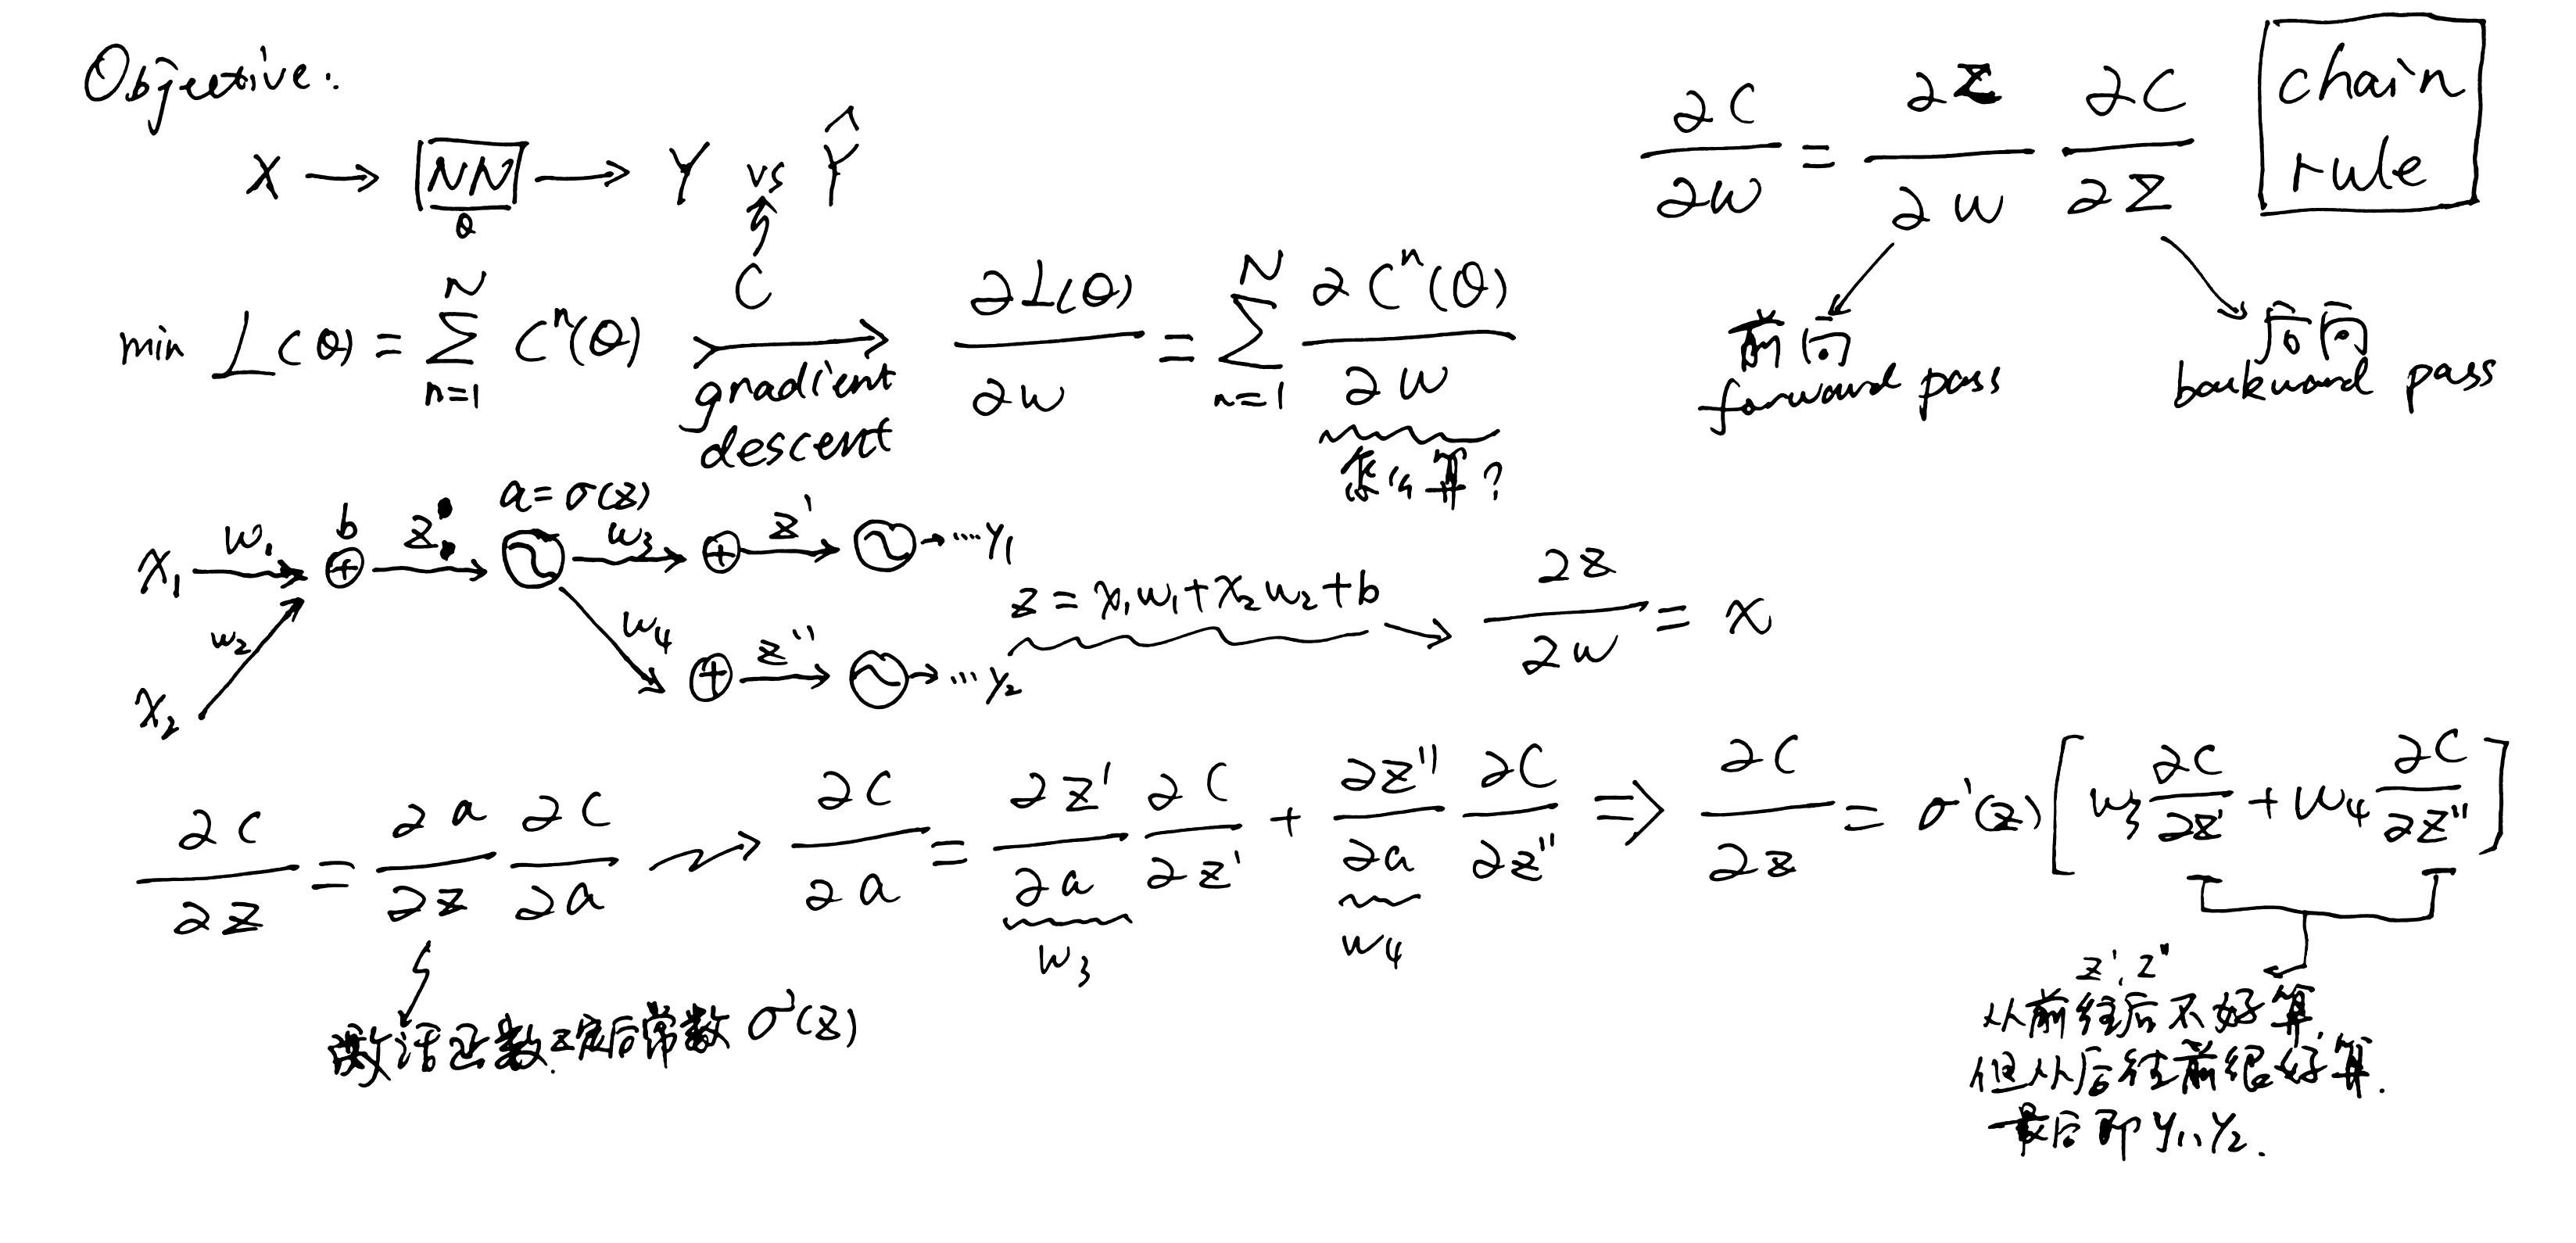 Objective:
X → NN → Y vs Ŷ
θ
C
min L(θ) = ∑_{n=1}^{N} Cⁿ(θ) → ∂L(θ)/∂w = ∑_{n=1}^{N} ∂Cⁿ(θ)/∂w
gradient
descent
怎么算?
∂C/∂w = ∂z/∂w ∂C/∂z
chain
rule
前向
forward pass
后向
backward pass
a = σ(z)
x₁ w₁ b ⊕ z w₃ ⊕ z' → ····y₁
x₂ w₂ w₄ ⊕ z'' → ···y₂
z = x₁w₁+x₂w₂+b → ∂z/∂w = x
∂C/∂z = ∂a/∂z ∂C/∂a → ∂C/∂a = ∂z'/∂a ∂C/∂z' + ∂z''/∂a ∂C/∂z'' ⇒ ∂C/∂z = σ'(z)[w₃ ∂C/∂z' + w₄ ∂C/∂z'']
w₃ w₄
激活函数.z定后常数 σ'(z)
z', z''
从前往后不好算,
但从后往前很好算.
最后即y₁、y₂.